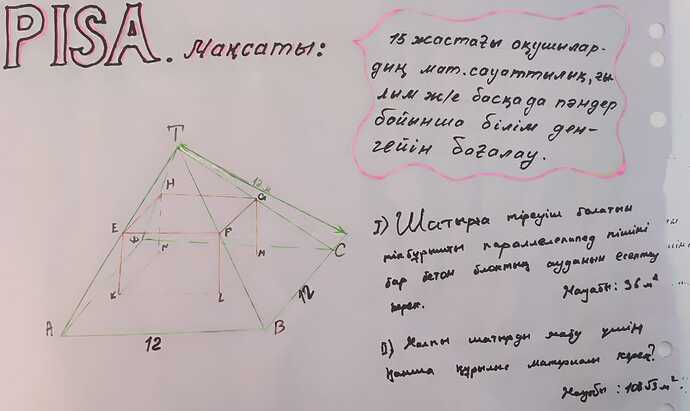 PISA. Мақсаты:
15 жастағы оқушылар-
дың мат. сауаттылық, ғы
лым ж/е басқада пәндер
бойынша білім ден-
гейін бағалау.
T
12 м
H
G
E
P
Ф
M
N
C
K
L
A
B
12
12
I) Шатырға тіреуіш болатын
тікбұрышты параллелепипед пішіні
бар бетон блоктың ауданын есептеу
керек.
Жауабы: 36 м²
II) Жалпы шатырды жабу үшін
қанша құрылыс материалы керек?
Жауабы: 108√3 м²